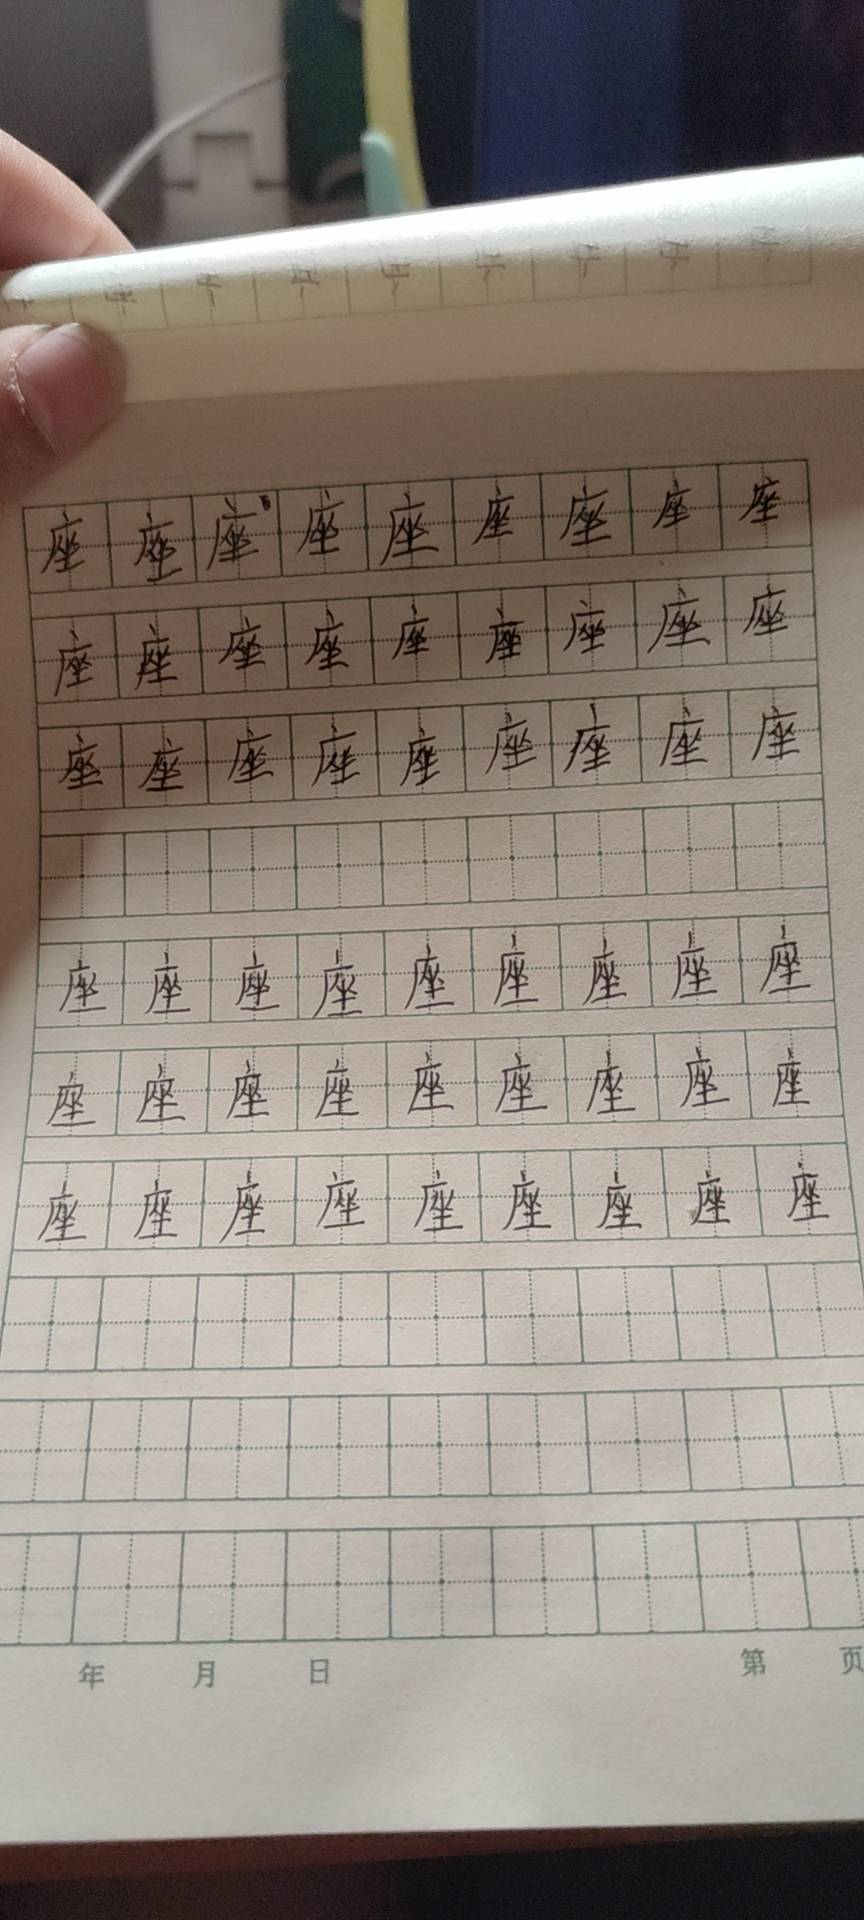 座座座座座座座座座
座座座座座座座座座
座座座座座座座座座
座座座座座座座座座
座座座座座座座座座
座座座座座座座座座
年 月 日 第 页